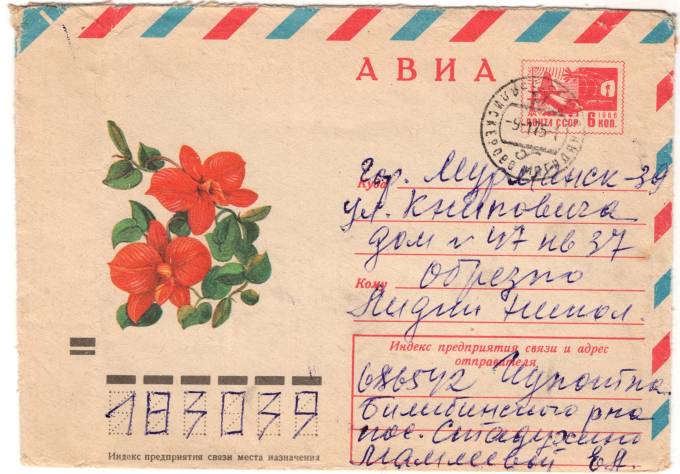 АВИА
ПОЧТА СССР
1966
6 КОП.
Куда гор. Мурманск-39
ул. Книповича
дом № 47 кв 37
Кому Обрезно
Лидии Никол.
Индекс предприятия связи и адрес
отправителя
686542 Чукотка
Билибинского р-на
пос. Стадухино
Мамлеевой Е.Н.
183039
Индекс предприятия связи места назначения